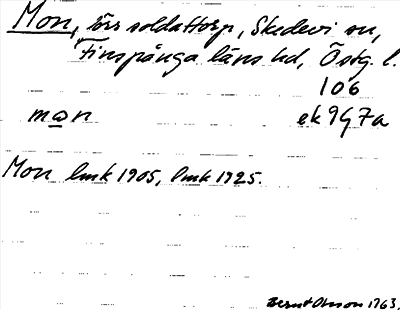 Mon, förr soldattorp, Skedevi sn,
Finspånga läns hd, Östg. l.
106
mɷn ek 9G7a
Mon lmk 1905, lmk 1925.
Bernt Olsson 1963.